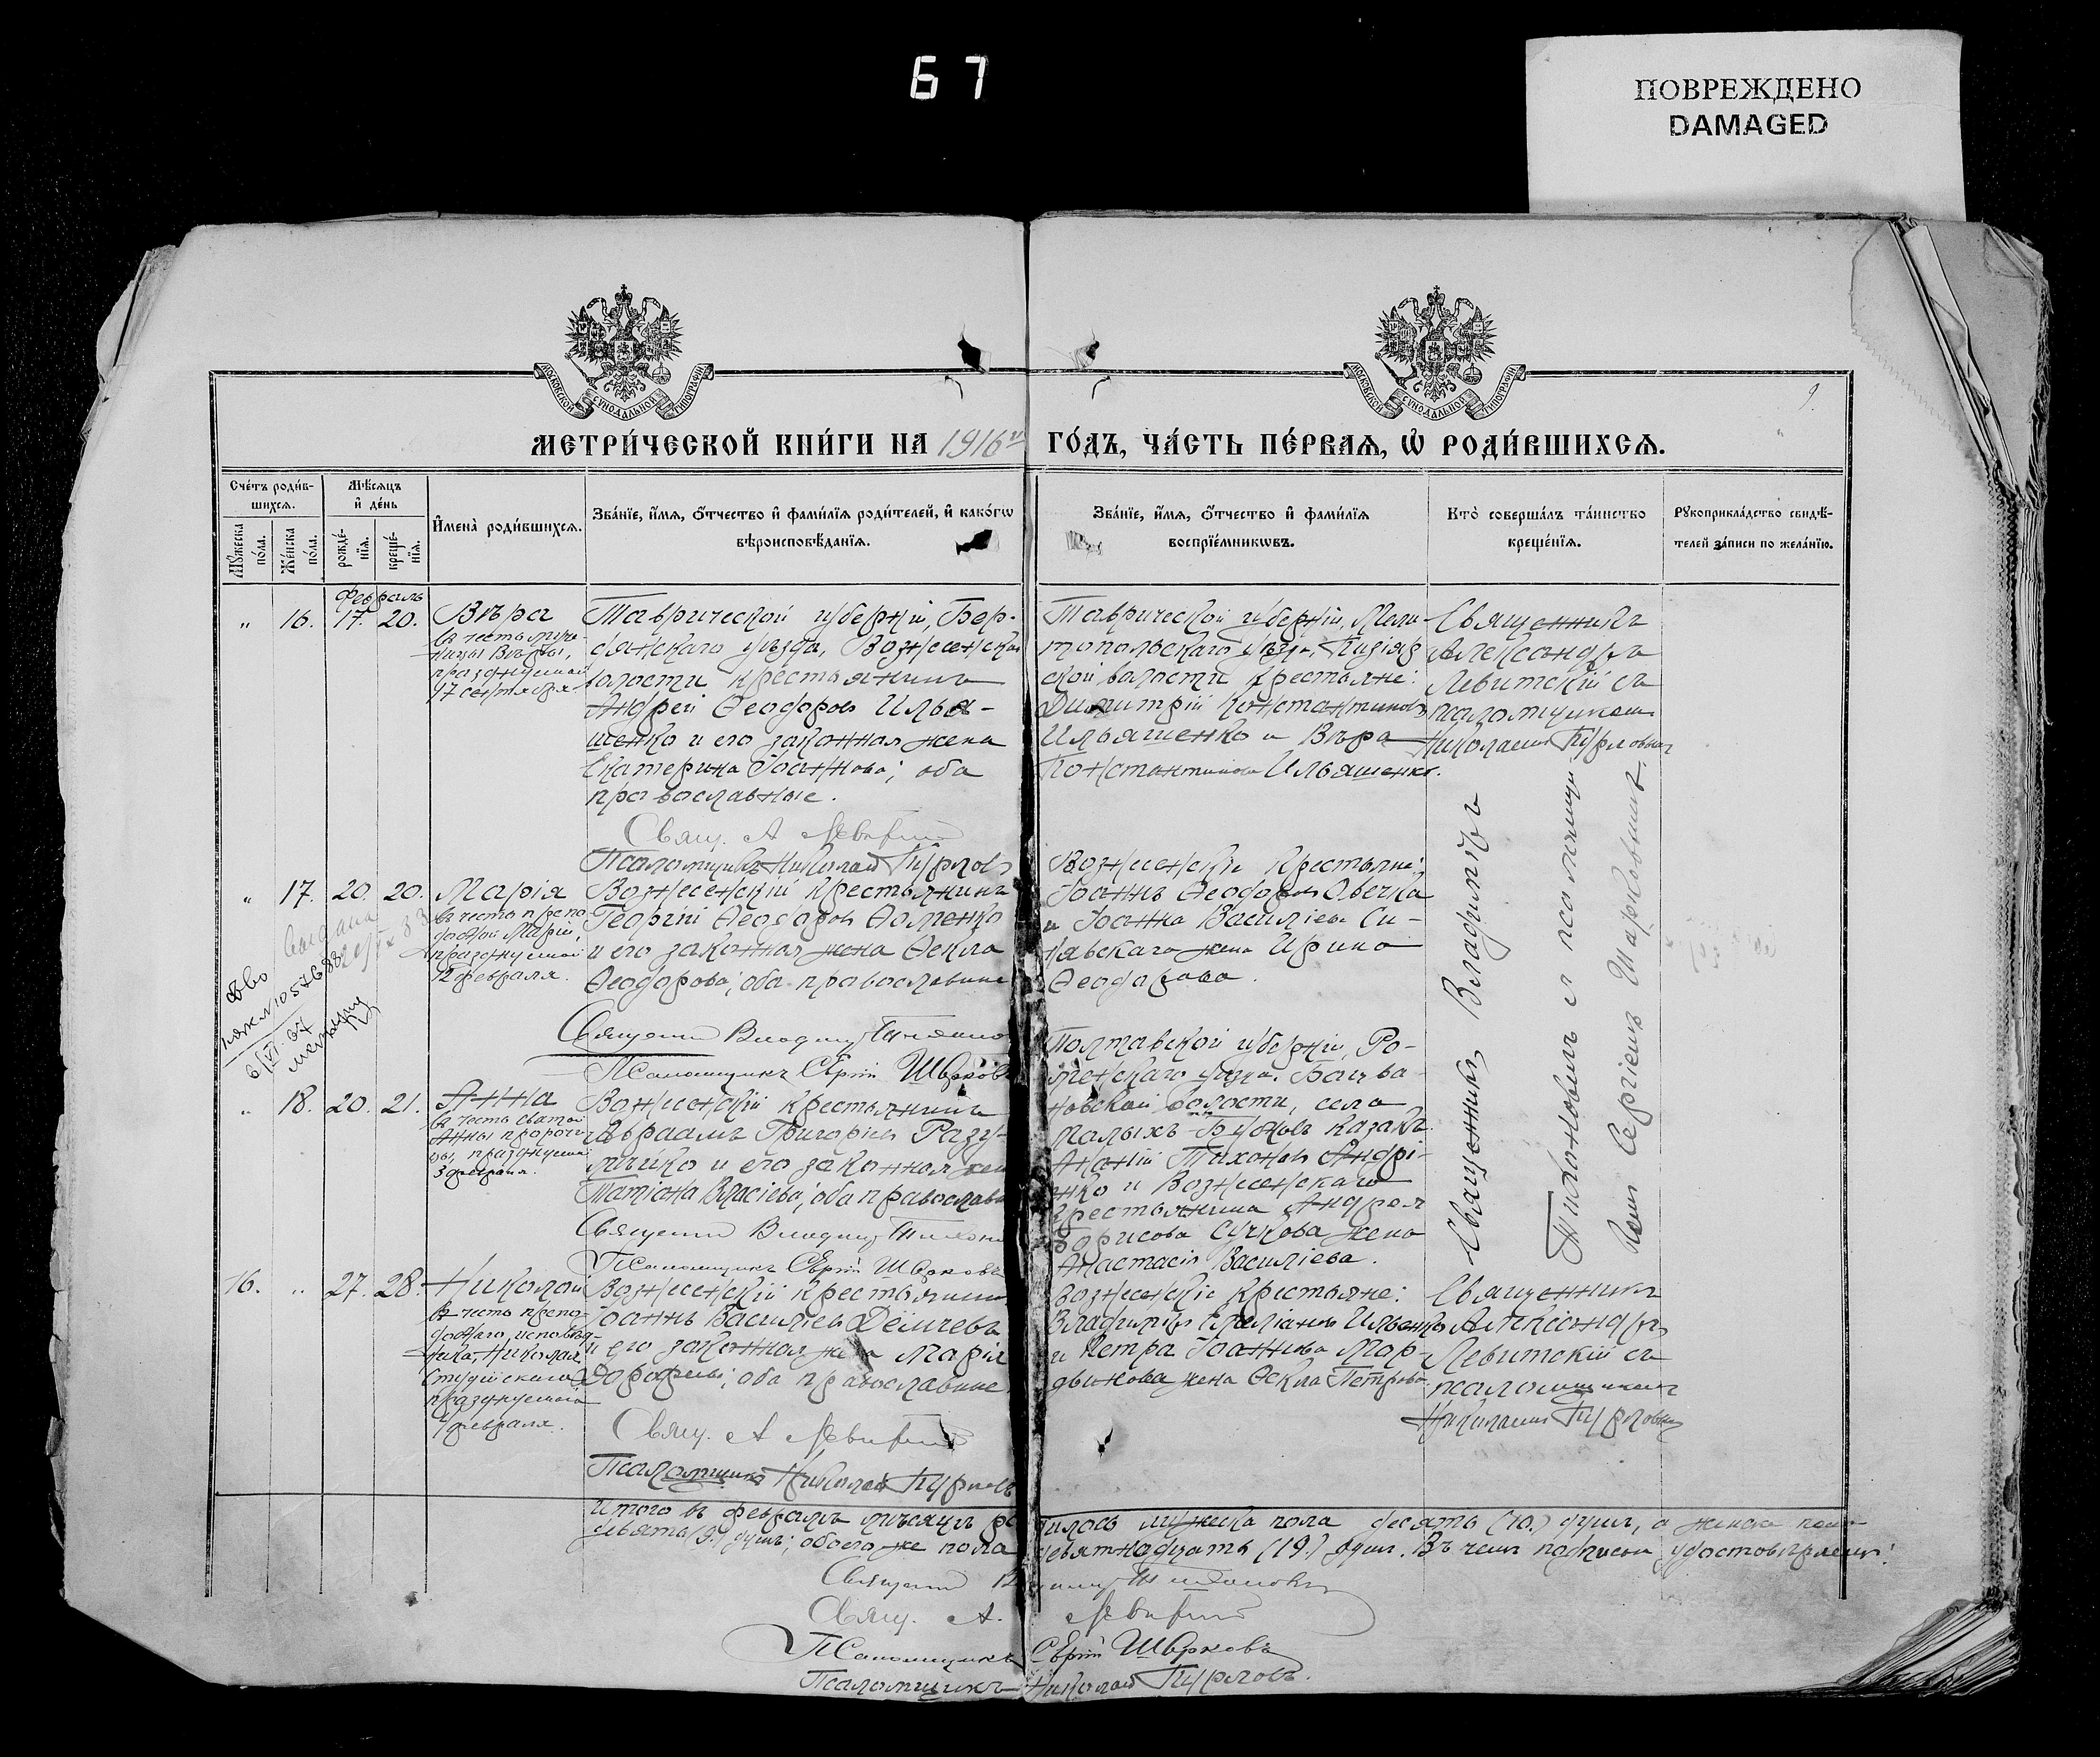 67
ПОВРЕЖДЕНО
DAMAGED
9
МОСКОВСКОЙ СУНОДАЛЬНОЙ ТИПОГРАФІИ
МОСКОВСКОЙ СУНОДАЛЬНОЙ ТИПОГРАФІИ
МЕТРИ́ЧЕСКОЙ КНИ́ГИ НА 1916й ГО́ДЪ, ЧА́СТЬ ПЕ́РВАЯ, Ѡ РОДИ́ВШИХСЯ.
Сче́тъ роди́в-
шихся.
Мꙋ́жеска
по́ла.
Же́нска
по́ла.
Мѣ́сяцъ
и де́нь
рожде́-
нїя.
креще́-
нїя.
И́мена̀ роди́вшихся.
Зва́нїе, и́мя, о́тчество и фами́лїя роди́телей, и како́гѡ
вѣроисповѣ́данїя.
Зва́нїе, и́мя, о́тчество и фами́лїя
воспрїе́мникѡвъ.
Кто̀ соверша́лъ та́инство
креще́нїя.
Рꙋкоприкла́дство свидѣ́-
телей за́писи по жела́нїю.
Февраль
„ 16. 17. 20. Вѣра
въ честь муче-
ницы Вѣры,
празднуемой
17 сентября
Таврической губерніи, Бер-
дянскаго уѣзда, Вознесенской
волости крестьянинъ
Андрей Ѳеодоровъ Илья-
шенко и его законная жена
Екатерина Іоаннова; оба
православные.
Свящ. А Левитскій
Псаломщикъ Николай Курловъ
Таврической губерніи, Мели-
топольскаго уѣзда,
ской волости крестьяне:
Димитрій Константиновъ
Ильяшенко и Вѣра
Константинова Ильяшенко.
Священникъ
Александръ
Левитскій съ
псаломщикомъ
Николаемъ Курловымъ
„ 17. 20. 20. Марія
въ честь препо-
добной Маріи,
празднуемой
12 февраля.
Вознесенскій крестьянинъ
Георгій Ѳеодоровъ Ѳоменко
и его законная жена Ѳекла
Ѳеодорова; оба православные
Священникъ Владиміръ Тихоновъ
Псаломщикъ Сергій Шарковъ
Вознесенскіе крестьяне:
Іоаннъ Ѳеодоровъ Овечка
и Іоанна Василіева Си-
нявскаго жена Ирина
Ѳеодорова.
Священникъ Владиміръ
Тихоновымъ и псаломщи-
комъ Сергіемъ Шарковымъ.
„ 18. 20. 21. Анна
въ честь святой
Анны пророчи-
цы, празднуемой
3 февраля.
Вознесенскій крестьянинъ
Авраамъ Григоріевъ Разу-
мейко и его законная жена
Татіана Власіева; оба православные
Священникъ Владиміръ Тихоновъ
Псаломщикъ Сергій Шарковъ
Полтавской губерніи, Ро-
менскаго уѣзда,
новской волости, села
Малыхъ Бубновъ казакъ
Ананій Тихоновъ Андрі-
енко и Вознесенскаго
крестьянина Андрея
Борисова Сучкова жена
Анастасія Василіева.
16. „ 27. 28. Николай
въ честь препо-
добнаго исповѣд-
ника, Николая
Студійскаго,
празднуемаго
4 февраля.
Вознесенскій крестьянинъ
Іоаннъ Василіевъ Демчевъ
и его законная жена Марія
Дороѳеева; оба православные
Свящ. А Левитскій
Псаломщикъ Николай Курловъ
Вознесенскіе крестьяне:
Владиміръ Емеліановъ Ильенко
и Петра Іоаннова Мор-
двинова жена Ѳекла Петрова
Священникъ
Александръ
Левитскій съ
псаломщикомъ
Николаемъ Курловымъ
Итого въ февралѣ мѣсяцѣ родилось мужеска пола десять (10.) душъ, а женска пола
девять (9.) душъ; обоего же пола девятнадцать (19.) душъ. Въ чемъ подписью удостовѣряемъ:
Священникъ Владиміръ Тихоновъ
Свящ. А. Левитскій
Псаломщикъ Сергій Шарковъ
Псаломщикъ Николай Курловъ.